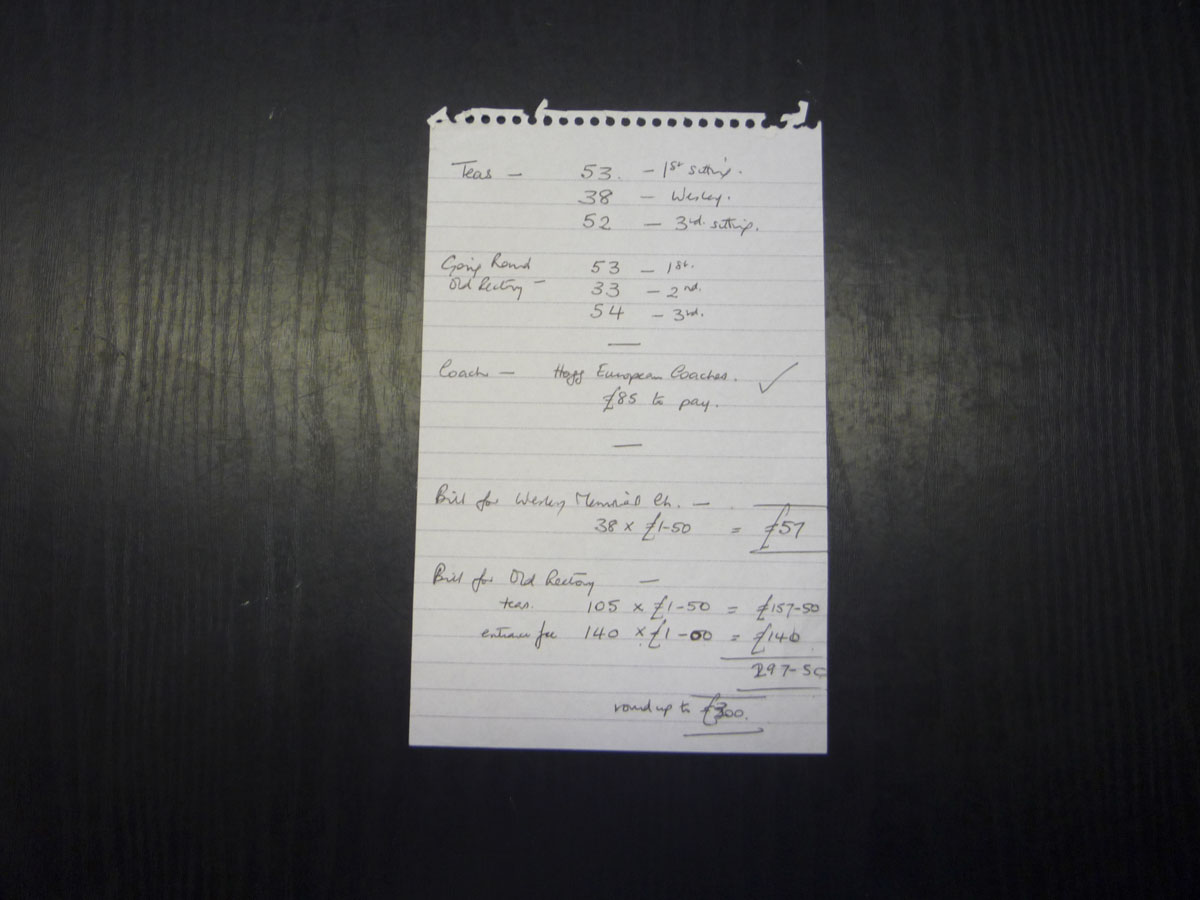 Teas — 53. — 1st sitting.
38 — Wesley.
52 — 3rd. sitting.
Going Round 53 — 1st.
Old Rectory — 33 — 2nd.
54 — 3rd.
—
Coach — Hogg European Coaches. ✓
£85 to pay.
—
Bill for Wesley Memorial Ch. —
38 × £1-50 = £57
Bill for Old Rectory —
teas. 105 × £1-50 = £157-50
entrance fee 140 × £1-00 = £140
297-50
round up to £300.